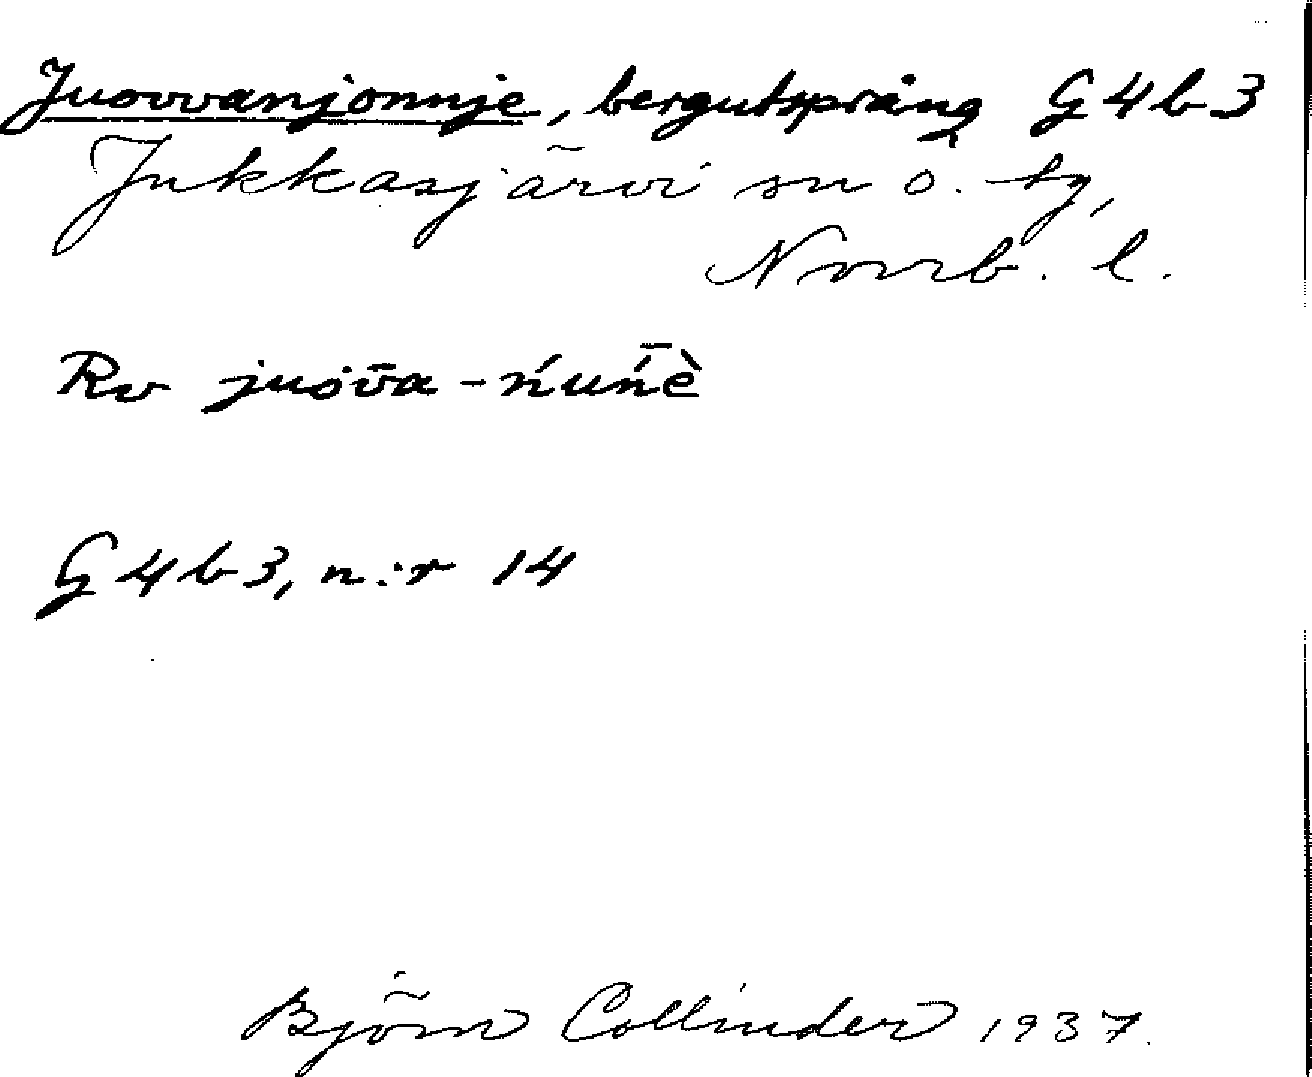 Juovvanjonnje, bergutsprång G4b3
Jukkasjärvi sn o. tg,
Norrb. l.
Rv juȯv̄a-ńuń̄è
G4b3, n:r 14
Björn Collinder 1937.